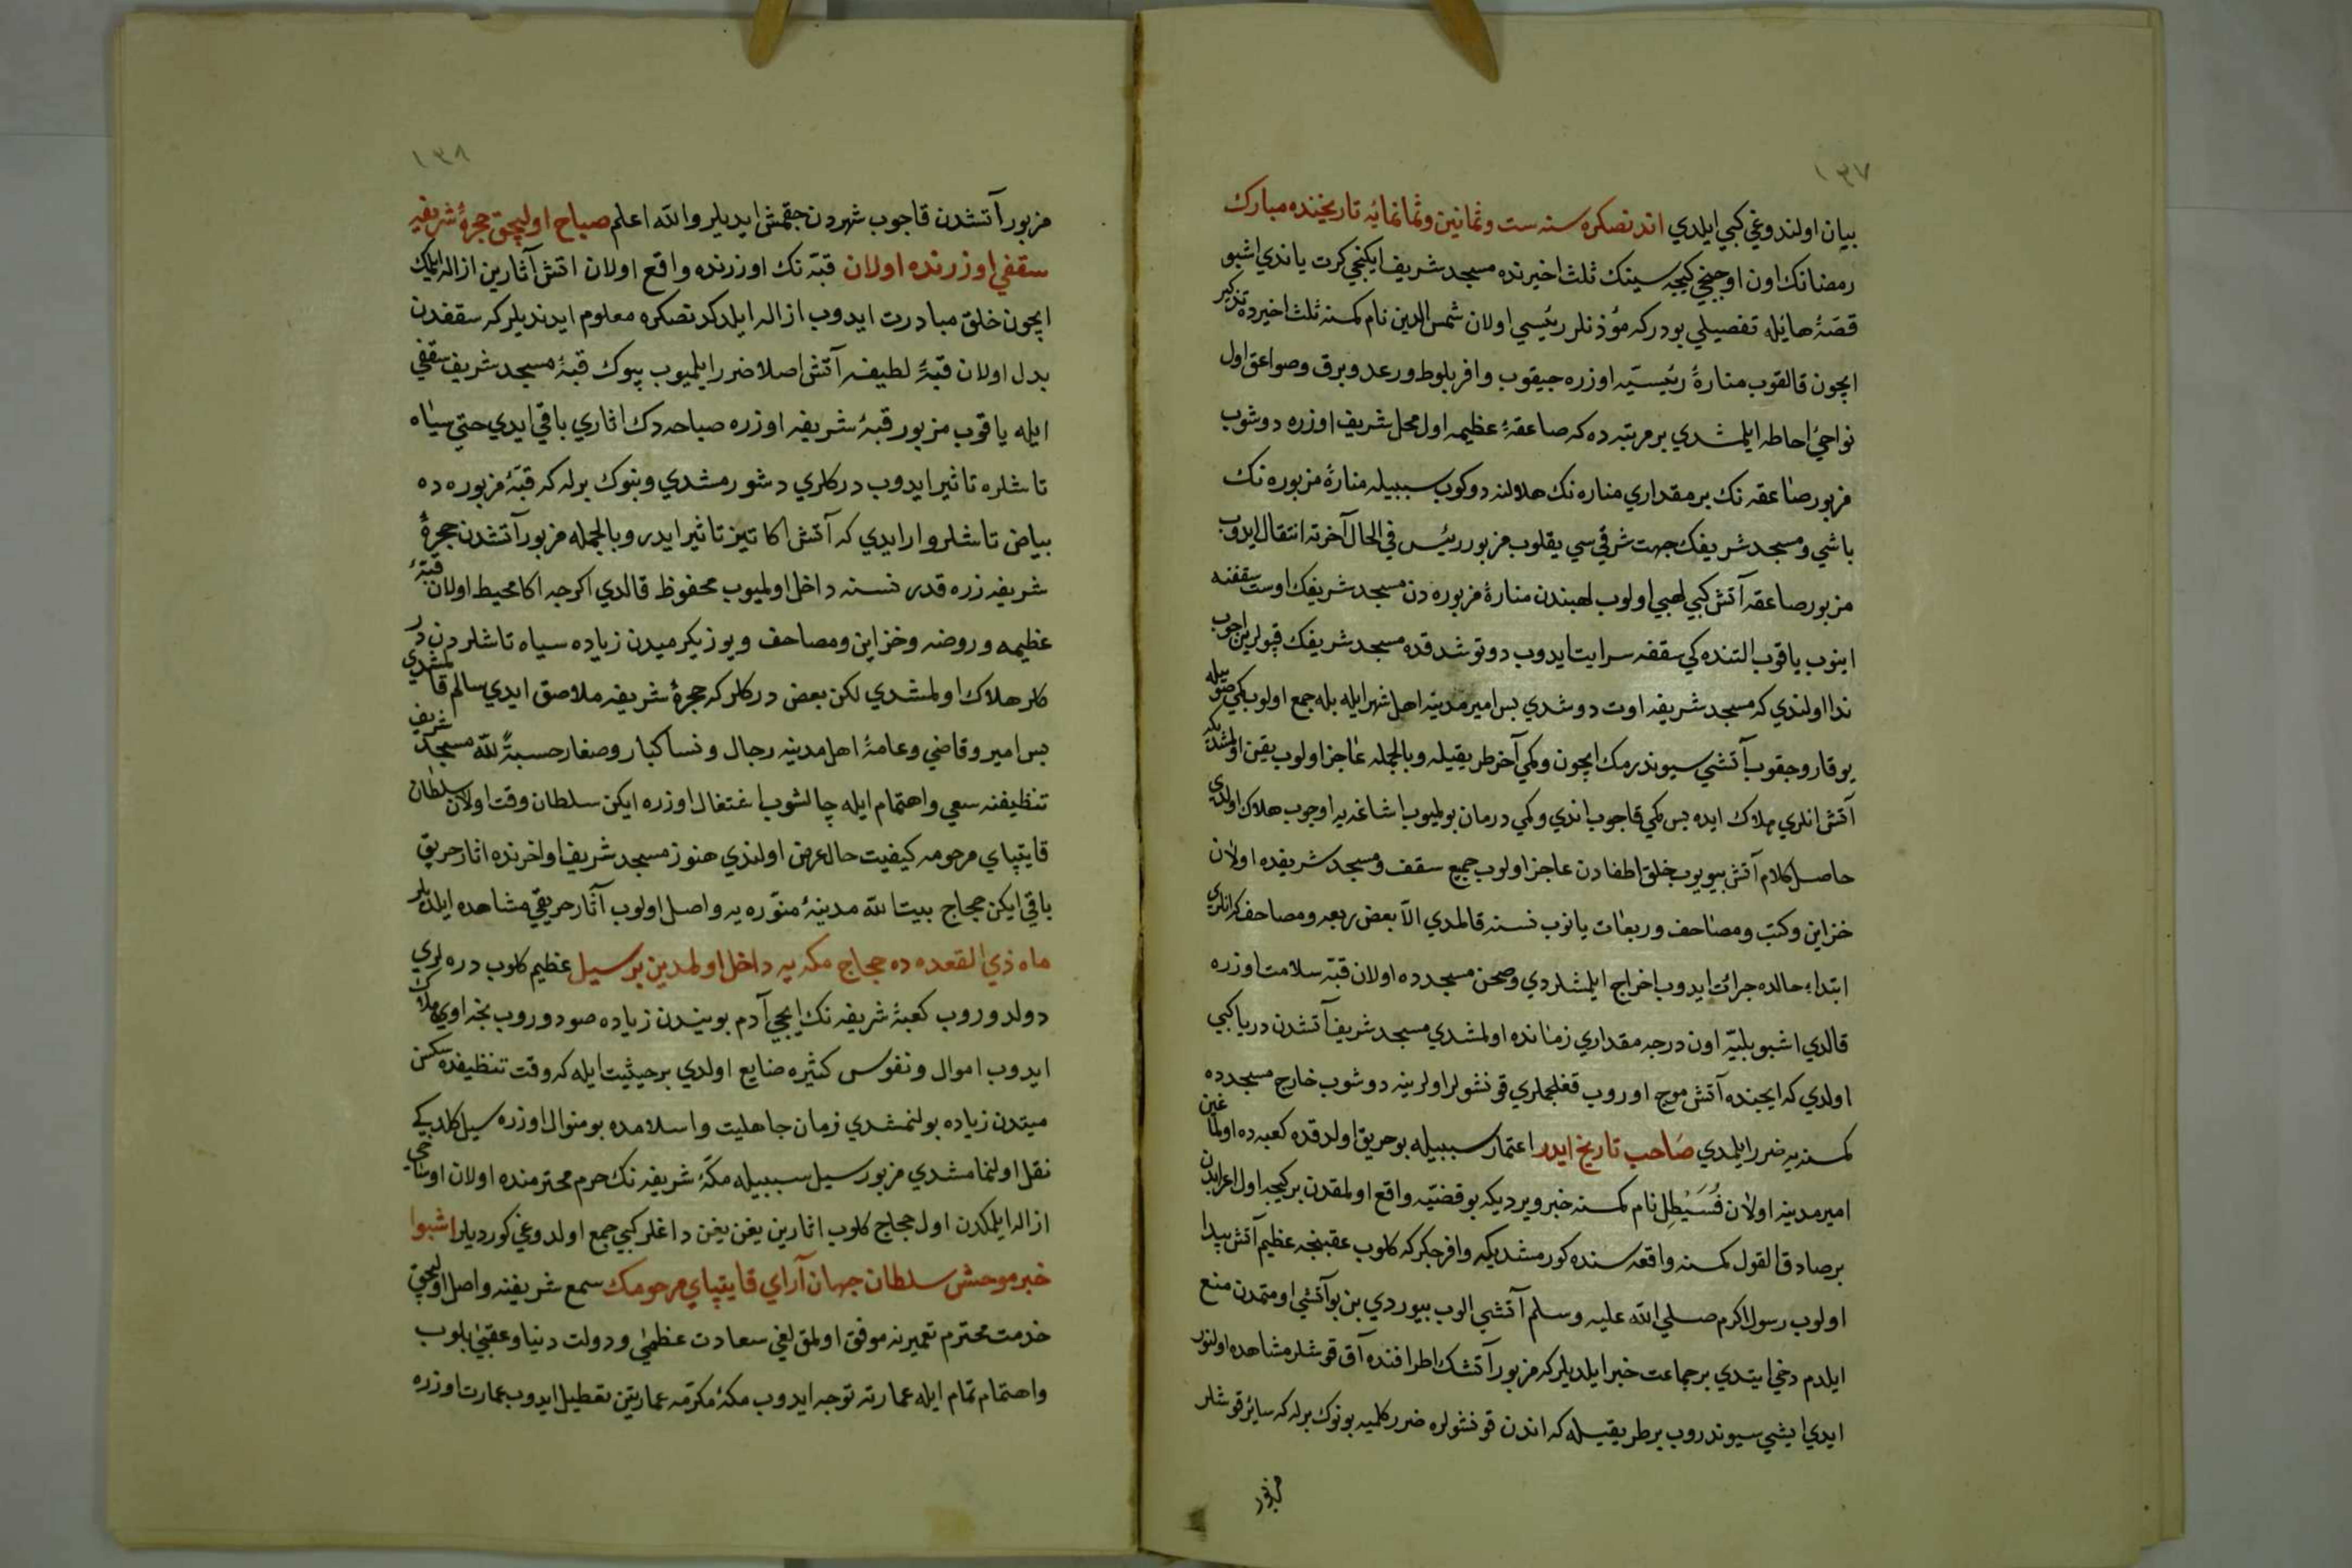 ١٣٧
بيان اولندوغي كبي ايلدي اندنصكره سنه ست وثمانين وثمانمائه تاريخنده مبارك
رمضانك اون اوچنجي كيجه سينك ثلث اخيرنده مسجد شريف ايكنجي كرت ياندي اشبو
قصّۀ هايله تفصيلي بودركه مؤذنلر رئيسي اولان شمس الدين نام كمسنه ثلث اخيرده تذكير
ايچون قالقوب منارۀ رئيسيّه اوزره جيقوب وافر بلوط ورعد وبرق وصواعق اول
نواحئ احاطه ايلمشدي بر مرتبه ده كه صاعقۀ عظيمه اول محل شريف اوزره دوشوب
مزبور صاعقه نك بر مقداري مناره نك هلالنه دوكوب سببيله منارۀ مزبوره نك
باشي ومسجد شريفك جهت شرقي سي يقلوب مزبور رئيس في الحال آخرته انتقال ايدوب
مزبور صاعقه آتش كبي لهبي اولوب لهبندن منارۀ مزبوره دن مسجد شريفك اوست سقفنه
اينوب ياقوب التنده كي سقفه سرايت ايدوب دوتوشدقده مسجد شريفك قپولرين اچوب
ندا اولندي كه مسجد شريفه اوت دوشدي پس امير مدينه اهل شهر ايله بله جمع اولوب كمي صو ييله
يوقارو جقوب آتشي سيوندرمك ايچون وكمي آخر طريقيله وبالجمله عاجز اولوب يقين اولمشديكه
آتش انلري هلاك ايده پس كمي قاجوب اندي وكمي درمان بولميوب اشاغه يه اوجوب هلاك اولدي
حاصل كلام آتش بيويوب خلق اطفادن عاجز اولوب جميع سقف ومسجد شريفده اولان
خزاين وكتب ومصاحف وربعات يانوب نسنه قالمدي الاّ بعض ربعه ومصاحف كه انلري
ابتداء حالده جرائت ايدوب اخراج ايلمشلردي وصحن مسجدده اولان قبّه سلامت اوزره
قالدي اشبو بليّه اون درجه مقداري زمانده اولمشدي مسجد شريف آتشدن دريا كبي
اولدي كه ايجنده آتش موج اوروب قغلجملري قونشولر اولرينه دوشوب خارج مسجدده
كمسنه يه ضرر ايلمدي صاحب تاريخ ايدر اعتمار سببيله بو حريق اولدقده كعبه ده اولماغين
امير مدينه اولان قُسَيْطِل نام كمسنه خبر ويرديكه بو قضيّه واقع اولمقدن بر كيجه اول اعرابدن
بر صادق القول كمسنه واقعه سنده كورمشديكه وافر جكركه كلوب عقبنجه عظيم آتش پيدا
اولوب رسول اكرم صلي الله عليه وسلم آتشي الوب بيوردي بن بو آتشي اومّتمدن منع
ايلدم دخي ايتدي بر جماعت خبر ايلديلر كه مزبور آتشك اطرافنده آق قوشلر مشاهده اولنور
ايدي ايشي سيوندروب بر طريقيله كه اندن قونشولره ضرر كلميه بونوك برله كه سائر قوشلر
مزبور
١٣٨
مزبور آتشدن قاجوب شهردن جقمش ايديلر والله اعلم صباح اوليجق حجرۀ شريفه
سقفي اوزرنده اولان قبّه نك اوزرنده واقع اولان اتش آثارين ازاله ايلمك
ايچون خلق مبادرت ايدوب ازاله ايلدكدنصكره معلوم ايدنديلر كه سقفدن
بدل اولان قبّۀ لطيفه آتش اصلا ضرر ايلميوب بيوك قبّۀ مسجد شريف سقفي
ايله ياقوب مزبور قبۀ شريفه اوزره صباحه دك اثاري باقي ايدي حتي سياه
تاشلره تاثير ايدوب دركلري دشورمشدي وبنوك برله كه قبّۀ مزبوره ده
بياض تاشلر وار ايدي كه آتش اكا تيز تاثير ايدر وبالجمله مزبور آتشدن حجرۀ
شريفه زره قدر نسنه داخل اولميوب محفوظ قالدي اكرجه اكا محيط اولان قبّۀ
عظيمه وروضه وخزاين ومصاحف ويوز يكرميدن زياده سياه تاشلردن در
كلر هلاك اولمشدي لكن بعض دركلر كه حجرۀ شريفه ملاصق ايدي سالم قالمشدي
پس امير وقاضي وعامۀ اهل مدينه رجال ونسا كبار وصغار حسبةً لله مسجد شريف
تنظيفنه سعي واهتمام ايله چالشوب اشتغال اوزره ايكن سلطان وقت اولان سلطان
قايتپاي مرحومه كيفيت حال عرض اولندي هنوز مسجد شريف اواخرنده اثار حريق
باقي ايكن حجاج بيت الله مدينۀ منوّره يه واصل اولوب آثار حريقي مشاهده ايلديلر
ماه ذي القعده ده حجاج مكه يه داخل اولمدين بر سيل عظيم كلوب دره لري
دولدوروب كعبۀ شريفه نك ايچي آدم بويندن زياده صو دوروب نجه اوي هلاك
ايدوب اموال ونفوس كثيره ضايع اولدي بر حيثيت ايله كه وقت تنظيفده سكسن
ميتدن زياده بولنمشدي زمان جاهليت واسلامده بو منوال اوزره سيل كلديكي
نقل اولنمامشدي مزبور سيل سببيله مكّۀ شريفه نك حرم محترمنده اولان اوساخي
ازاله ايلمكدن اول حجاج كلوب اثارين يغن يغن داغلر كبي جمع اولدوغي كورديلر اشبوا
خبر موحش سلطان جهان آراي قايتپاي مرحومك سمع شريفنه واصل اوليجق
خدمت محترم تعميرنه موفق اولمق لغي سعادت عظمي ودولت دنيا وعقبي بلوب
واهتمام تمام ايله عمارته توجه ايدوب مكۀ مكرّمه عمارتين تعطيل ايدوب عمارت اوزره